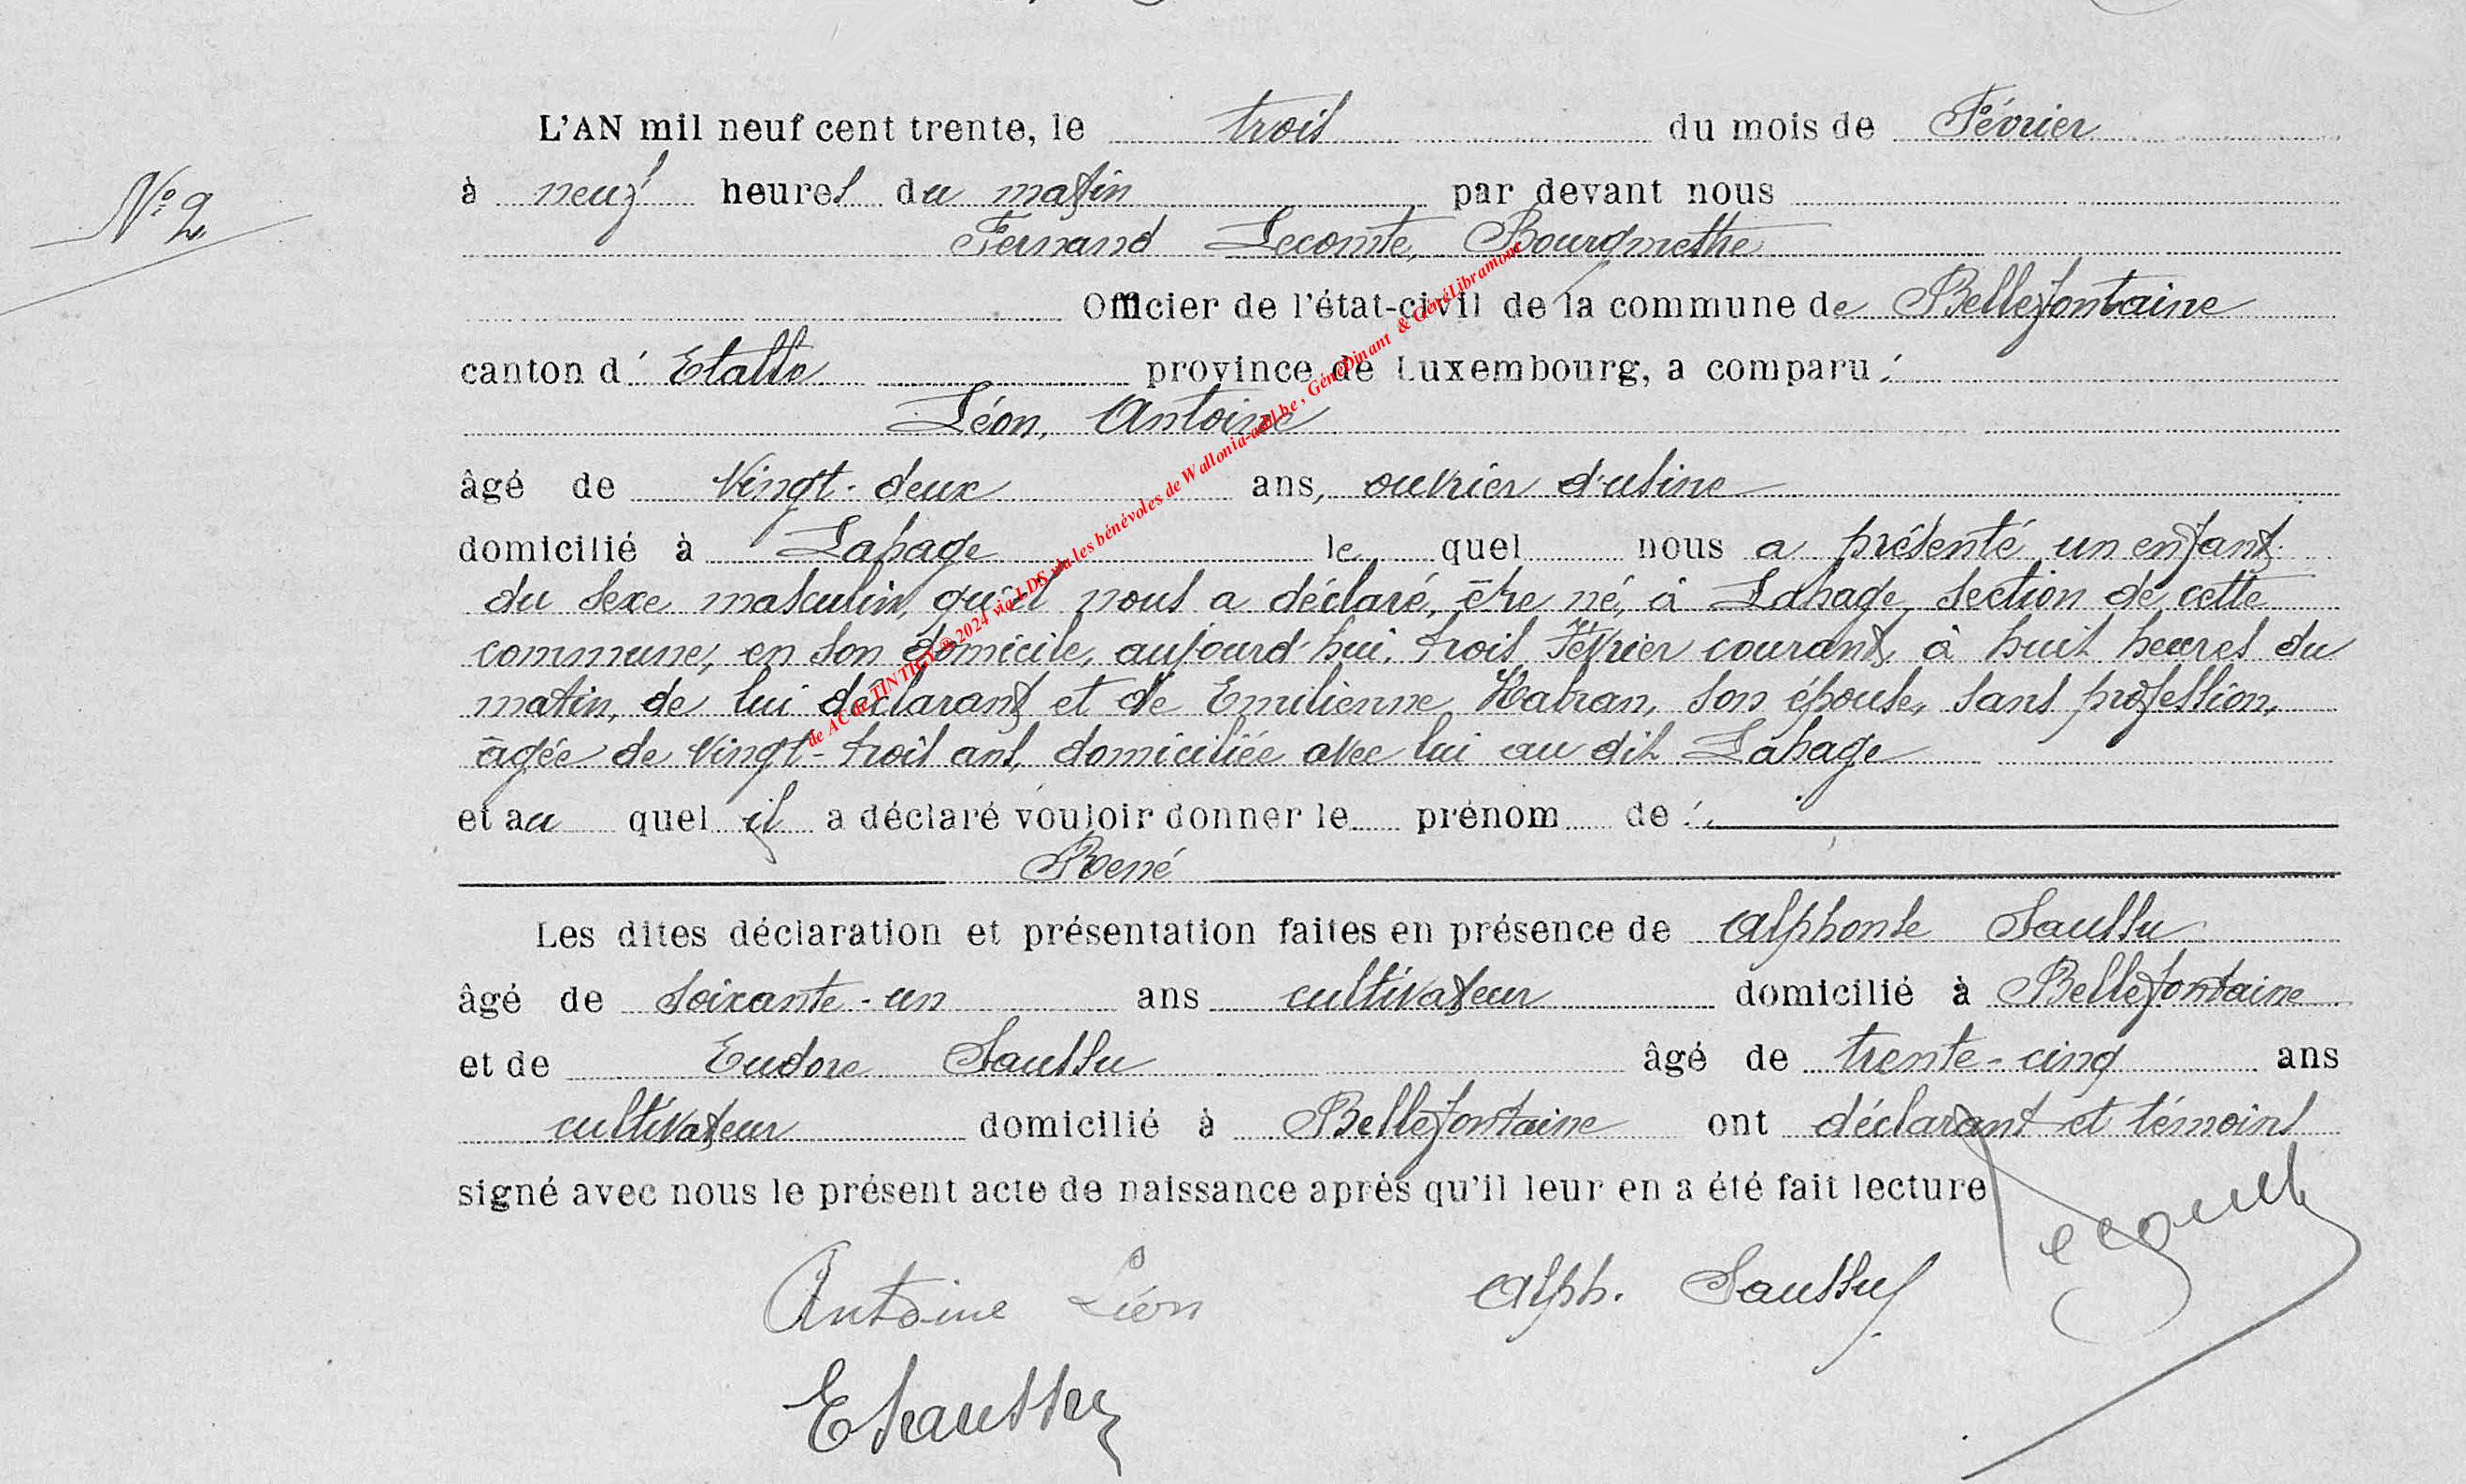 L'AN mil neuf cent trente, le trois du mois de Février
N° 2
à neuf heures du matin par devant nous
Fernand Lecomte, Bourgmestre
Officier de l'état-civil de la commune de Bellefontaine
canton d'Etalle province de Luxembourg, a comparu :
Léon, Antoine
âgé de vingt-deux ans, ouvrier d'usine
domicilié à Lahage le quel nous a présenté un enfant
du sexe masculin, qu'il nous a déclaré, être né, à Lahage, section de cette
commune, en son domicile, aujourd'hui, trois Février courant, à huit heures du
matin, de lui déclarant et de Emilienne Habran, son épouse, sans profession,
âgée de vingt-trois ans, domiciliée avec lui au dit Lahage
et au quel il a déclaré vouloir donner le prénom de :
René
Les dites déclaration et présentation faites en présence de Alphonse Saussu
âgé de soixante-un ans cultivateur domicilié à Bellefontaine
et de Eudore Saussu âgé de trente-cinq ans
cultivateur domicilié à Bellefontaine ont déclarant et témoins
signé avec nous le présent acte de naissance après qu'il leur en a été fait lecture
Lecomte
Antoine Léon
Alph. Saussu
E Saussu
de AC de TINTIGY ® 2024 via LDS via les bénévoles de Wallonia-asbl.be, GénéDinant & GénéLibramont